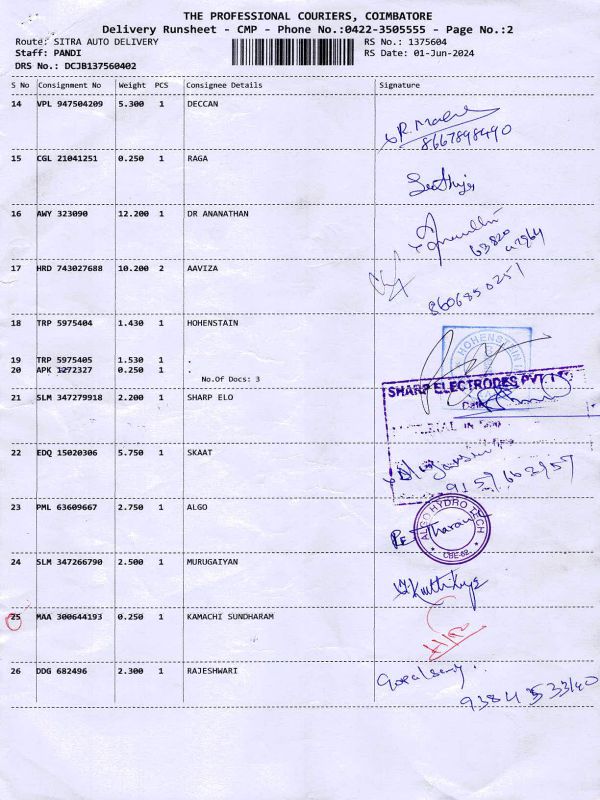 THE PROFESSIONAL COURIERS, COIMBATORE
Delivery Runsheet - CMP - Phone No.:0422-3505555 - Page No.:2
Route: SITRA AUTO DELIVERY RS No.: 1375604
Staff: PANDI RS Date: 01-Jun-2024
DRS No.: DCJB137560402
S No Consignment No Weight PCS Consignee Details Signature
14 VPL 947504209 5.300 1 DECCAN
8667898490
15 CGL 21041251 0.250 1 RAGA
16 AWY 323090 12.200 1 DR ANANATHAN
63820
17 HRD 743027688 10.200 2 AAVIZA
8606850251
18 TRP 5975404 1.430 1 HOHENSTAIN
HOHENSTEIN
19 TRP 5975405 1.530 1 .
20 APK 1272327 0.250 1 .
No.Of Docs: 3
SHARP ELECTRODES PVT
21 SLM 347279918 2.200 1 SHARP ELO
22 EDQ 15020306 5.750 1 SKAAT
9157663957
23 PML 63609667 2.750 1 ALGO
ALGO HYDRO TECH
CBE-62
24 SLM 347266790 2.500 1 MURUGAIYAN
25 MAA 300644193 0.250 1 KAMACHI SUNDHARAM
26 DDG 682496 2.300 1 RAJESHWARI